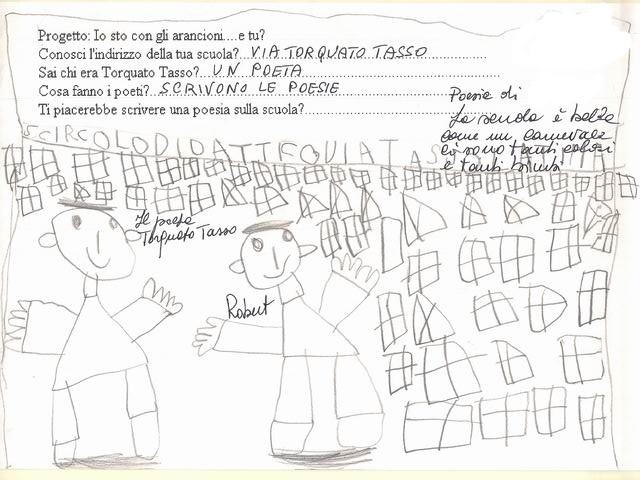 Progetto: Io sto con gli arancioni....e tu?
Conosci l'indirizzo della tua scuola? VIA TORQUATO TASSO
Sai chi era Torquato Tasso? UN POETA
Cosa fanno i poeti? SCRIVONO LE POESIE
Ti piacerebbe scrivere una poesia sulla scuola?
Poesie di
La scuola è bella
come un carnevale
ci sono tanti colori
e tanti bimbi
SCIRCOLO DIDATTICO VIA TASSO
Il poeta
Torquato Tasso
Robert